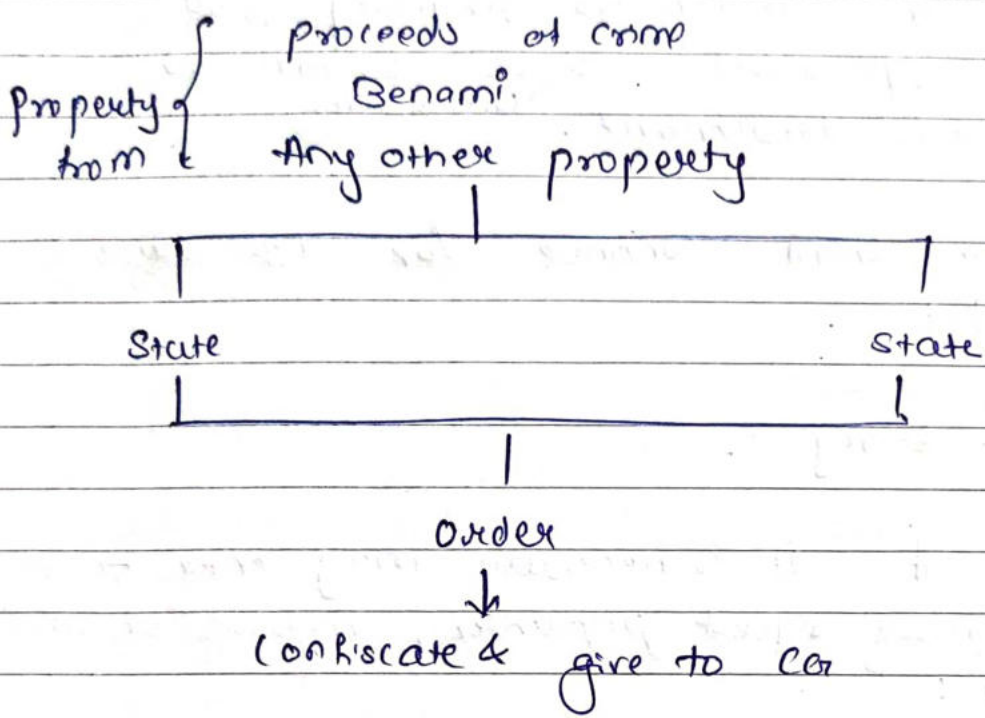 proceeds of crime
Property from
Benami.
Any other property
State
State
Order
Confiscate & give to CG